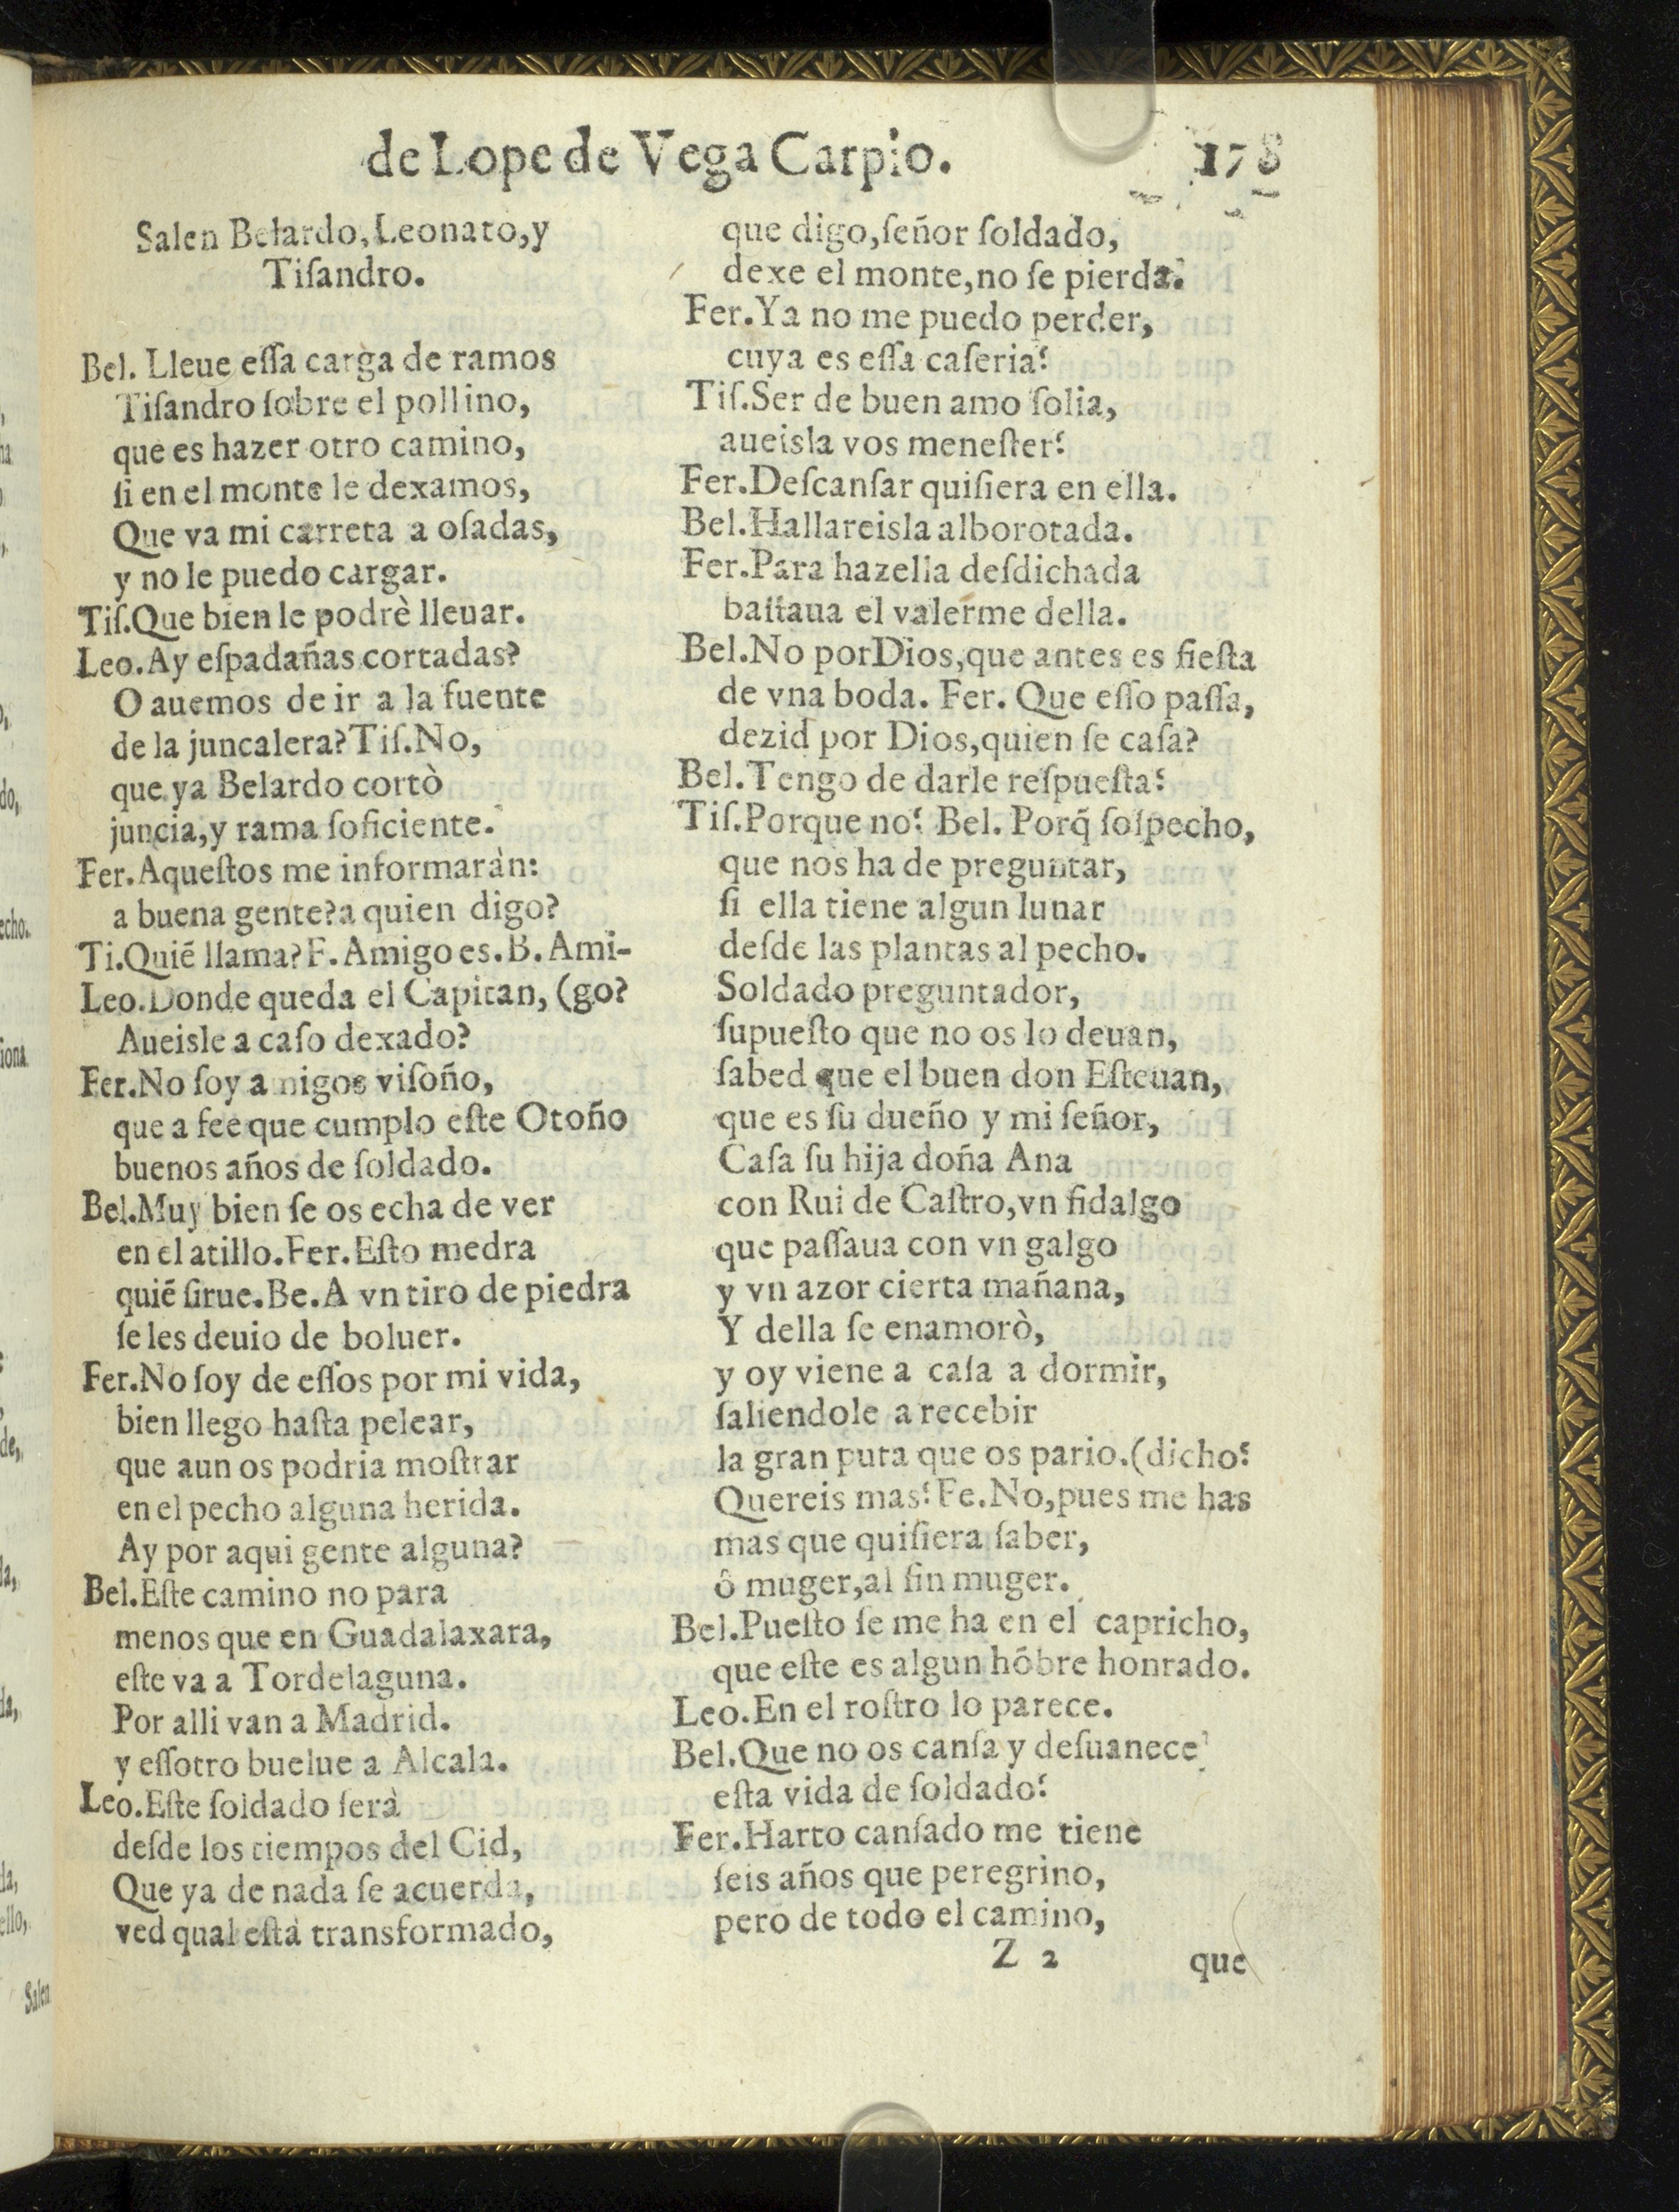 de Lope de Vega Carpio. 178
Salen Belardo, Leonato, y
Tiſandro.
Bel. Lleue eſſa carga de ramos
Tiſandro ſobre el pollino,
que es hazer otro camino,
ſi en el monte le dexamos,
Que va mi carreta a oſadas,
y no le puedo cargar.
Tiſ. Que bien le podrè lleuar.
Leo. Ay eſpadañas cortadas?
O auemos de ir a la fuente
de la juncalera? Tiſ. No,
que ya Belardo cortò
juncia, y rama ſoficiente.
Fer. Aqueſtos me informaràn:
a buena gente? a quien digo?
Ti. Quiẽ llama? F. Amigo es. B. Ami-
Leo. Donde queda el Capitan, (go?
Aueisle a caſo dexado?
Fer. No ſoy amigos viſoño,
que a fee que cumplo eſte Otoño
buenos años de ſoldado.
Bel. Muy bien ſe os echa de ver
en el atillo. Fer. Eſto medra
quiẽ ſirue. Be. A vn tiro de piedra
ſe les deuio de boluer.
Fer. No ſoy de eſſos por mi vida,
bien llego haſta pelear,
que aun os podria moſtrar
en el pecho alguna herida.
Ay por aqui gente alguna?
Bel. Eſte camino no para
menos que en Guadalaxara,
eſte va a Tordelaguna.
Por alli van a Madrid.
y eſſotro buelue a Alcala.
Leo. Eſte ſoldado ſerà
deſde los tiempos del Cid,
Que ya de nada ſe acuerda,
ved qual eſtà transformado,
que digo, ſeñor ſoldado,
dexe el monte, no ſe pierda.
Fer. Ya no me puedo perder,
cuya es eſſa caſeria?
Tiſ. Ser de buen amo ſolia,
aueisla vos meneſter?
Fer. Deſcanſar quiſiera en ella.
Bel. Hallareisla alborotada.
Fer. Para hazella deſdichada
baſtaua el valerme della.
Bel. No por Dios, que antes es fieſta
de vna boda. Fer. Que eſſo paſſa,
dezid por Dios, quien ſe caſa?
Bel. Tengo de darle reſpueſta?
Tiſ. Porque no? Bel. Porq̃ ſoſpecho,
que nos ha de preguntar,
ſi ella tiene algun lunar
deſde las plantas al pecho.
Soldado preguntador,
ſupueſto que no os lo deuan,
ſabed que el buen don Eſteuan,
que es ſu dueño y mi ſeñor,
Caſa ſu hija doña Ana
con Rui de Caſtro, vn fidalgo
que paſſaua con vn galgo
y vn azor cierta mañana,
Y della ſe enamorò,
y oy viene a caſa a dormir,
ſaliendole a recebir
la gran puta que os pario. (dicho?
Quereis mas? Fe. No, pues me has
mas que quiſiera ſaber,
ô muger, al fin muger.
Bel. Pueſto ſe me ha en el capricho,
que eſte es algun hõbre honrado.
Leo. En el roſtro lo parece.
Bel. Que no os canſa y deſuanece
eſta vida de ſoldado?
Fer. Harto canſado me tiene
ſeis años que peregrino,
pero de todo el camino,
Z 2 que